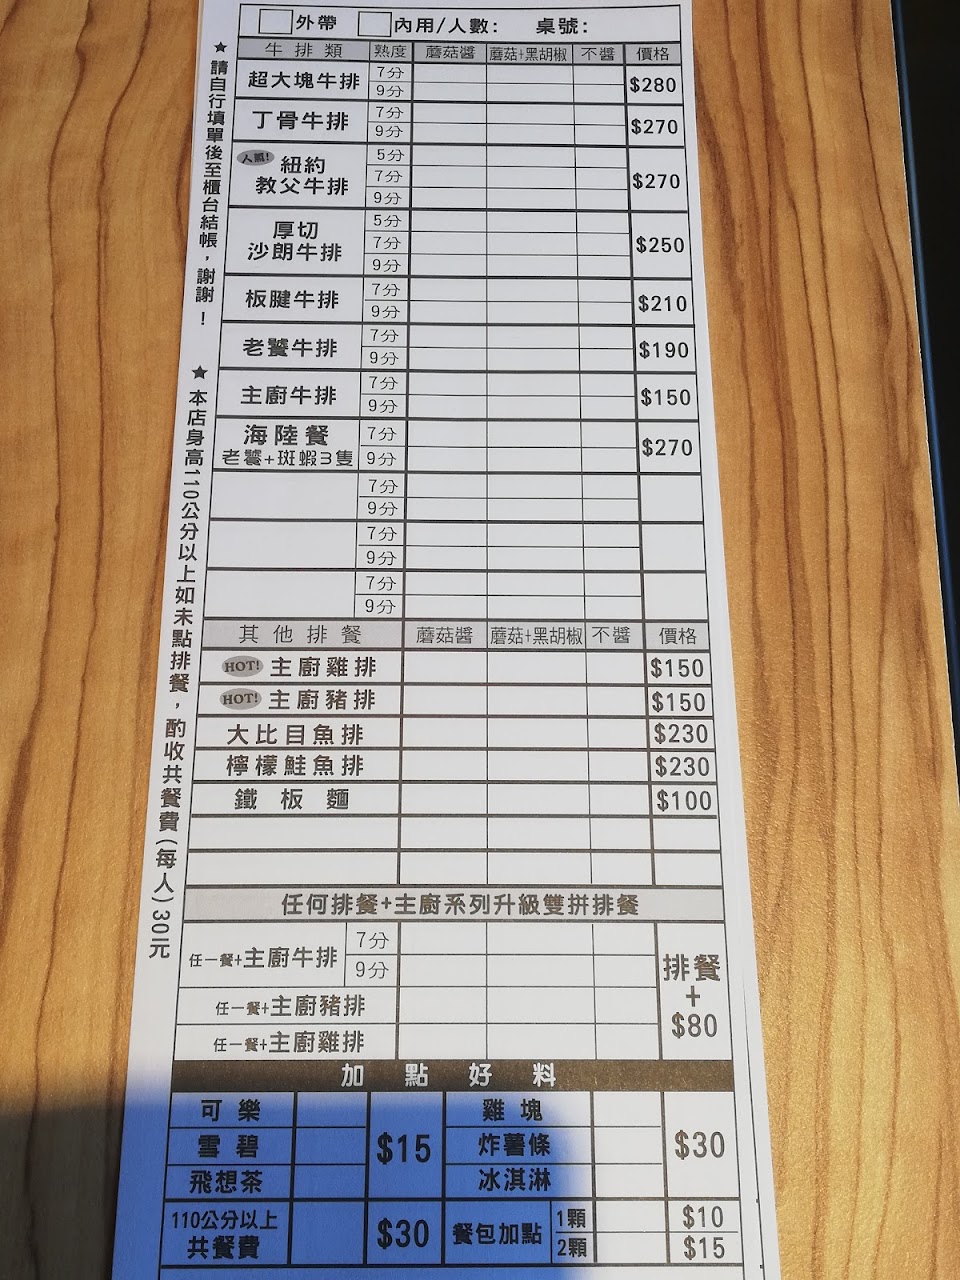 外帶 內用/人數: 桌號:
牛排類 熟度 蘑菇醬 蘑菇+黑胡椒 不醬 價格
超大塊牛排 7分 9分 $280
丁骨牛排 7分 9分 $270
人氣! 紐約
教父牛排 5分 7分 9分 $270
厚切
沙朗牛排 5分 7分 9分 $250
板腱牛排 7分 9分 $210
老饕牛排 7分 9分 $190
主廚牛排 7分 9分 $150
海陸餐
老饕+斑蝦3隻 7分 9分 $270
7分
9分
7分
9分
7分
9分
其他排餐 蘑菇醬 蘑菇+黑胡椒 不醬 價格
HOT! 主廚雞排 $150
HOT! 主廚豬排 $150
大比目魚排 $230
檸檬鮭魚排 $230
鐵板麵 $100
任何排餐+主廚系列升級雙拼排餐
任一餐+主廚牛排 7分 9分
任一餐+主廚豬排
任一餐+主廚雞排
排餐
+
$80
加點好料
可樂 雞塊
雪碧 $15 炸薯條 $30
飛想茶 冰淇淋
110公分以上
共餐費 $30
餐包加點 1顆 $10
2顆 $15
★請自行填單後至櫃台結帳,謝謝!
★本店身高110公分以上如未點排餐,酌收共餐費(每人)30元